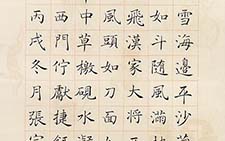 雪海邊平沙莽
如斗隨風滿地
飛漢家大將
風頭如刀面
中草檄硯水凝
西門佇獻捷
丙戌冬月張家